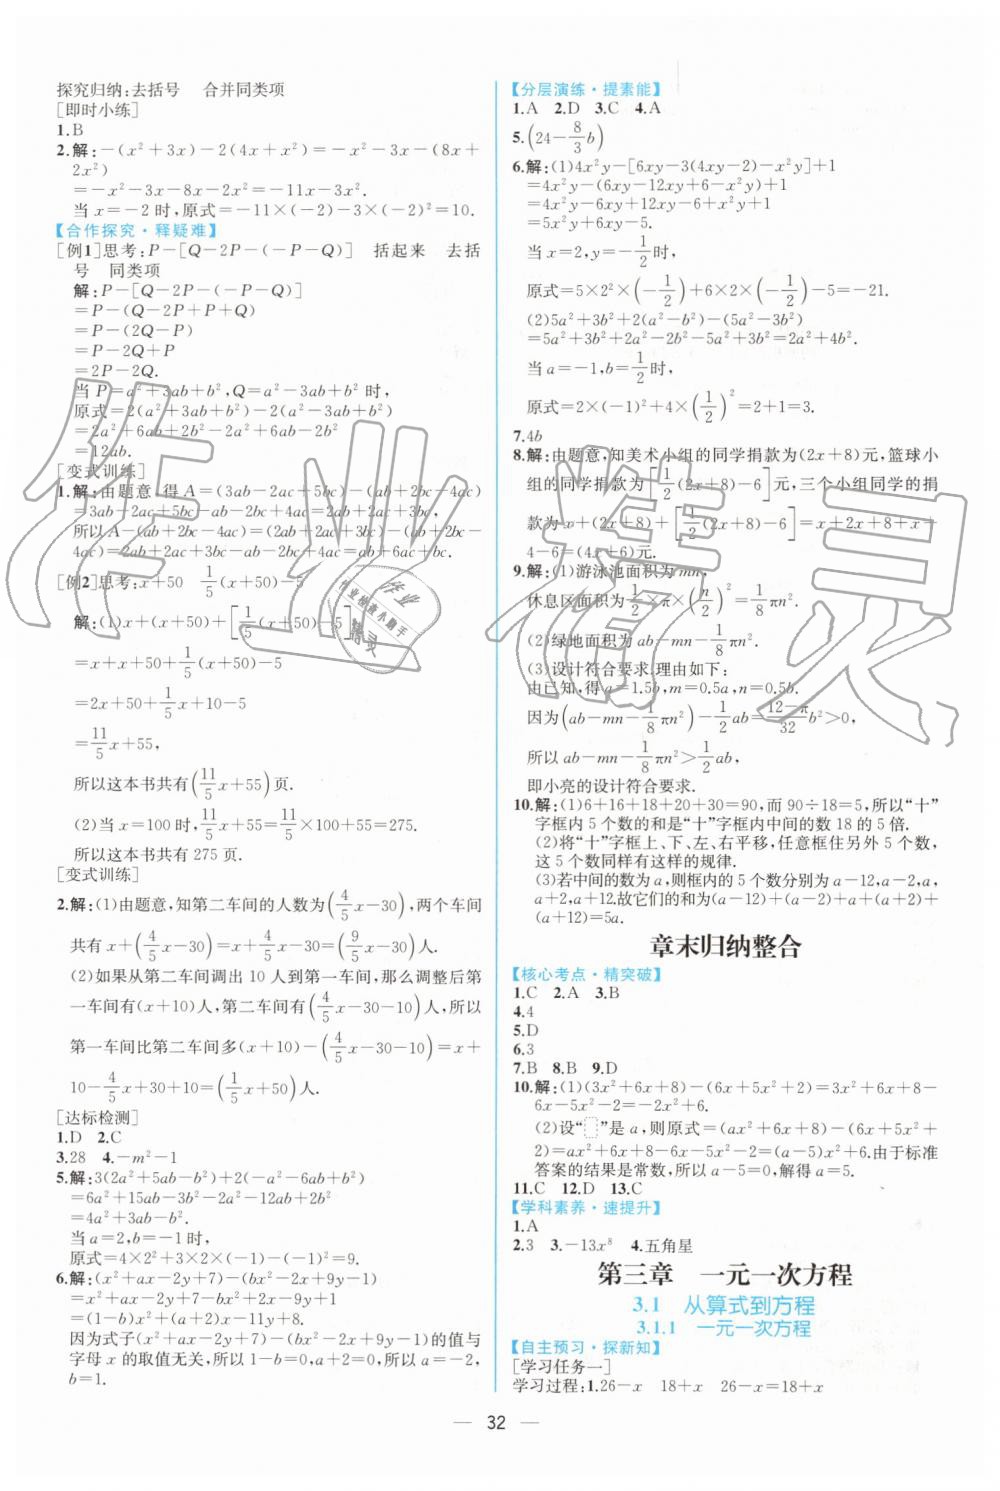 探究归纳:去括号　合并同类项
[即时小练]
1.B
2.解:-(x²+3x)-2(4x+x²)=-x²-3x-(8x+
2x²)
=-x²-3x-8x-2x²=-11x-3x².
当x=-2时,原式=-11×(-2)-3×(-2)²=10.
【合作探究·释疑难】
[例1]思考:P-[Q-2P-(-P-Q)]　括起来　去括
号　同类项
解:P-[Q-2P-(-P-Q)]
=P-(Q-2P+P+Q)
=P-(2Q-P)
=P-2Q+P
=2P-2Q.
当P=a²+3ab+b²,Q=a²-3ab+b²时,
原式=2(a²+3ab+b²)-2(a²-3ab+b²)
=2a²+6ab+2b²-2a²+6ab-2b²
=12ab.
[变式训练]
1.解:由题意,得A=(3ab-2ac+5bc)-(ab+2bc-4ac)
=3ab-2ac+5bc-ab-2bc+4ac=2ab+2ac+3bc,
所以A-(ab+2bc-4ac)=(2ab+2ac+3bc)-(ab+2bc-
4ac)=2ab+2ac+3bc-ab-2bc+4ac=ab+6ac+bc.
[例2]思考:x+50　1/5(x+50)-5
解:(1)x+(x+50)+[1/5(x+50)-5]
=x+x+50+1/5(x+50)-5
=2x+50+1/5x+10-5
=11/5x+55,
所以这本书共有(11/5x+55)页.
(2)当x=100时,11/5x+55=11/5×100+55=275.
所以这本书共有275页.
[变式训练]
2.解:(1)由题意,知第二车间的人数为(4/5x-30),两个车间
共有x+(4/5x-30)=x+4/5x-30=(9/5x-30)人.
(2)如果从第二车间调出10人到第一车间,那么调整后第
一车间有(x+10)人,第二车间有(4/5x-30-10)人,所以
第一车间比第二车间多(x+10)-(4/5x-30-10)=x+
10-4/5x+30+10=(1/5x+50)人.
[达标检测]
1.D　2.C
3.28　4.-m²-1
5.解:3(2a²+5ab-b²)+2(-a²-6ab+b²)
=6a²+15ab-3b²-2a²-12ab+2b²
=4a²+3ab-b².
当a=2,b=-1时,
原式=4×2²+3×2×(-1)-(-1)²=9.
6.解:(x²+ax-2y+7)-(bx²-2x+9y-1)
=x²+ax-2y+7-bx²+2x-9y+1
=(1-b)x²+(a+2)x-11y+8.
因为式子(x²+ax-2y+7)-(bx²-2x+9y-1)的值与
字母x的取值无关,所以1-b=0,a+2=0,所以a=-2,
b=1.
【分层演练·提素能】
1.A　2.D　3.C　4.A
5.(24-8/3b)
6.解:(1)4x²y-[6xy-3(4xy-2)-x²y]+1
=4x²y-(6xy-12xy+6-x²y)+1
=4x²y-6xy+12xy-6+x²y+1
=5x²y+6xy-5.
当x=2,y=-1/2时,
原式=5×2²×(-1/2)+6×2×(-1/2)-5=-21.
(2)5a²+3b²+2(a²-b²)-(5a²-3b²)
=5a²+3b²+2a²-2b²-5a²+3b²=2a²+4b².
当a=-1,b=1/2时,
原式=2×(-1)²+4×(1/2)²=2+1=3.
7.4b
8.解:由题意,知美术小组的同学捐款为(2x+8)元,篮球小
组的同学捐款为[1/2(2x+8)-6]元,三个小组同学的捐
款为x+(2x+8)+[1/2(2x+8)-6]=x+2x+8+x+
4-6=(4x+6)元.
9.解:(1)游泳池面积为mn,
休息区面积为1/2×π×(n/2)²=1/8πn².
(2)绿地面积为ab-mn-1/8πn².
(3)设计符合要求.理由如下:
由已知,得a=1.5b,m=0.5a,n=0.5b.
因为(ab-mn-1/8πn²)-1/2ab=(12-π)/32b²>0,
所以ab-mn-1/8πn²>1/2ab,
即小亮的设计符合要求.
10.解:(1)6+16+18+20+30=90,而90÷18=5,所以“十”
字框内5个数的和是“十”字框内中间的数18的5倍.
(2)将“十”字框上、下、左、右平移,任意框住另外5个数,
这5个数同样有这样的规律.
(3)若中间的数为a,则框内的5个数分别为a-12,a-2,a,
a+2,a+12.故它们的和为(a-12)+(a-2)+a+(a+2)+
(a+12)=5a.
章末归纳整合
【核心考点·精突破】
1.C　2.A　3.B
4.4
5.D
6.3
7.B　8.B　9.D
10.解:(1)(3x²+6x+8)-(6x+5x²+2)=3x²+6x+8-
6x-5x²-2=-2x²+6.
(2)设“□”是a,则原式=(ax²+6x+8)-(6x+5x²+
2)=ax²+6x+8-6x-5x²-2=(a-5)x²+6.由于标准
答案的结果是常数,所以a-5=0,解得a=5.
11.C　12.D　13.C
【学科素养·速提升】
1.A
2.3　3.-13x⁸　4.五角星
第三章　一元一次方程
3.1　从算式到方程
3.1.1　一元一次方程
【自主预习·探新知】
[学习任务一]
学习过程:1.26-x　18+x　26-x=18+x
— 32 —
作业精灵
作业
作业检查小助手
精灵